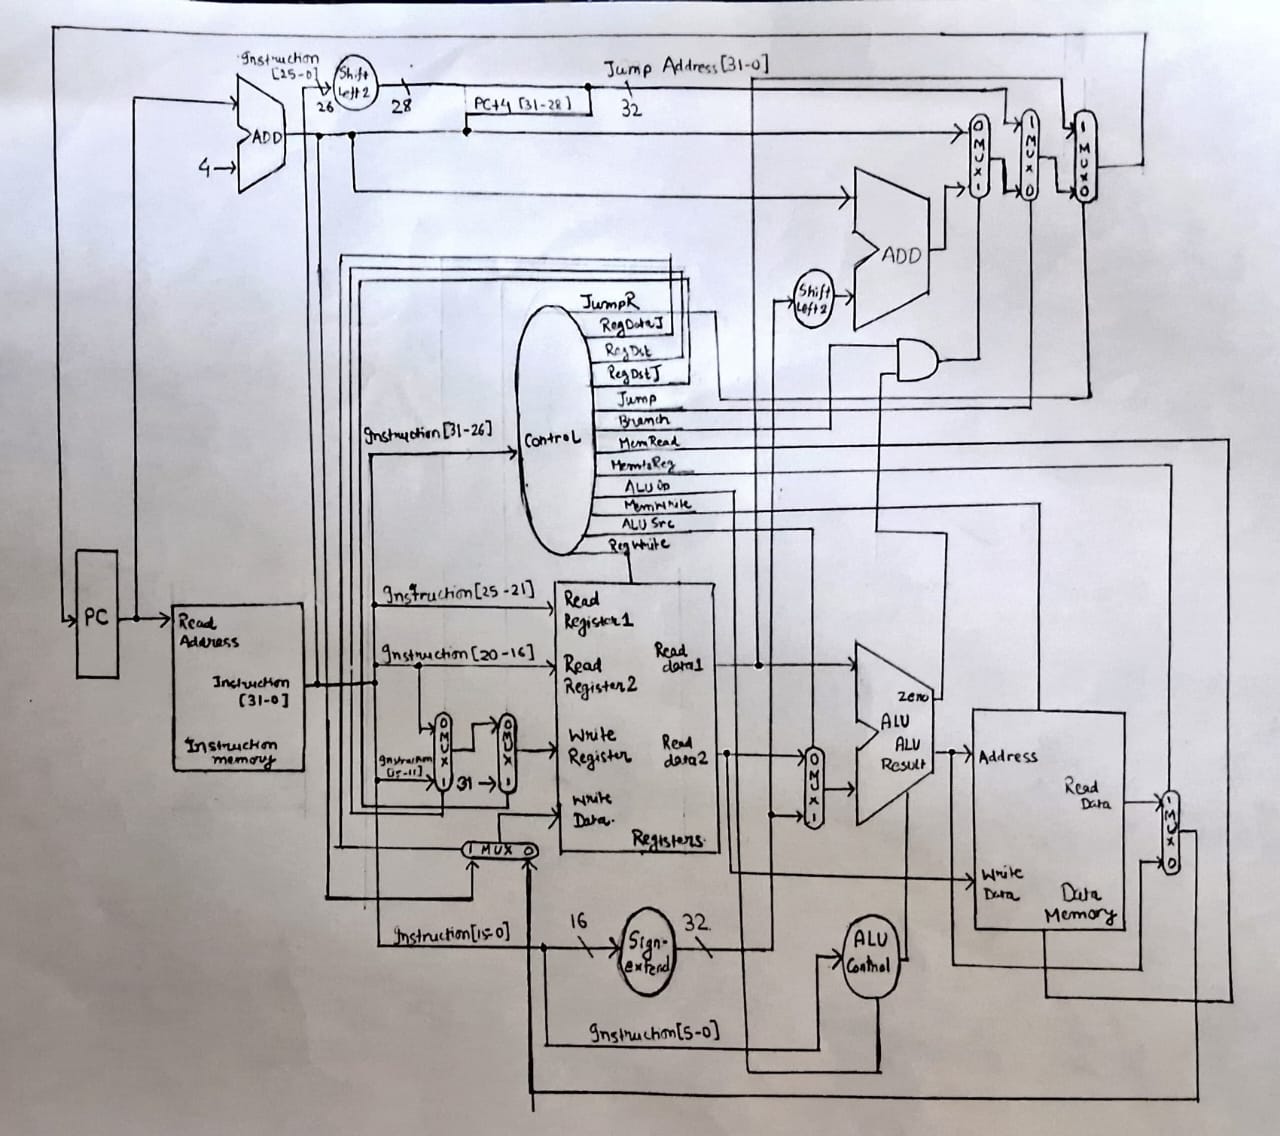 Instruction
[25-0]
26
Shift
Left 2
28
Jump Address[31-0]
32
PC+4 [31-28]
ADD
4
0
M
U
X
1
1
M
U
X
0
1
M
U
X
0
ADD
Shift
Left 2
JumpR
RegDataJ
RegDst
RegDstJ
Jump
Branch
MemRead
MemtoReg
ALU Op
MemWrite
ALU Src
RegWrite
Control
Instruction [31-26]
PC
Read
Address
Instruction
[31-0]
Instruction
memory
Instruction[25-21]
Instruction [20-16]
Instruction
[15-11]
0
M
U
X
1
31
0
M
U
X
1
Read
Register1
Read
Register2
Write
Register
Write
Data.
Read
data1
Read
data2
Registers.
1 MUX 0
0
M
U
X
1
Zero
ALU
ALU
Result
Address
Read
Data
Write
Data
Data
Memory
1
M
U
X
0
Instruction[15-0]
16
Sign-
extend
32
ALU
Control
Instruction[5-0]